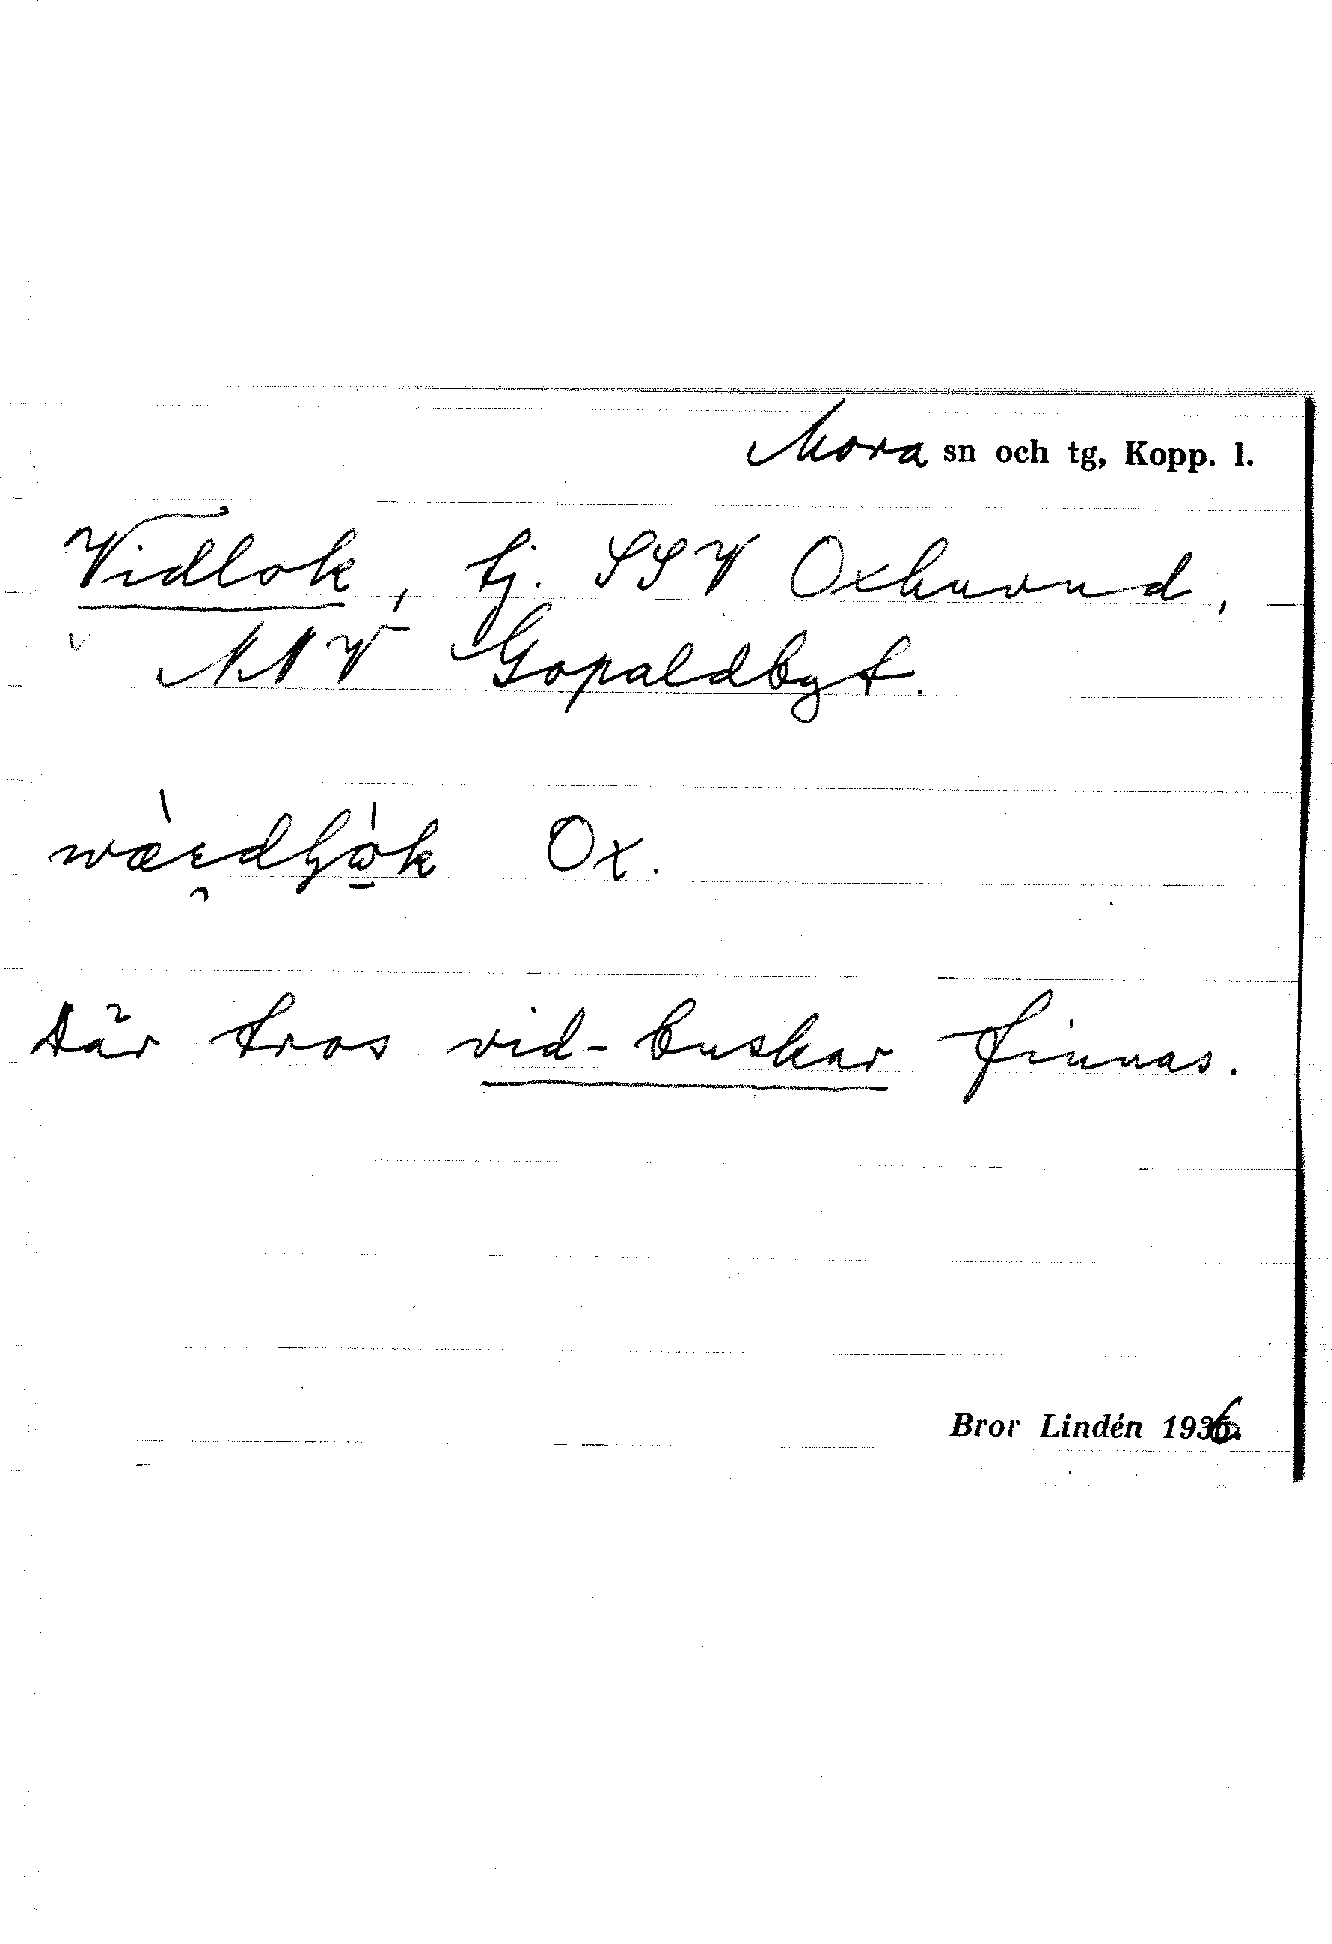 Mora sn och tg, Kopp. l.
Vidlok, tj. SSV Oxhuvud,
NNV Gopaldbyt.
Ox.
Där tros vid-buskar finnas.
Bror Lindén 1936.